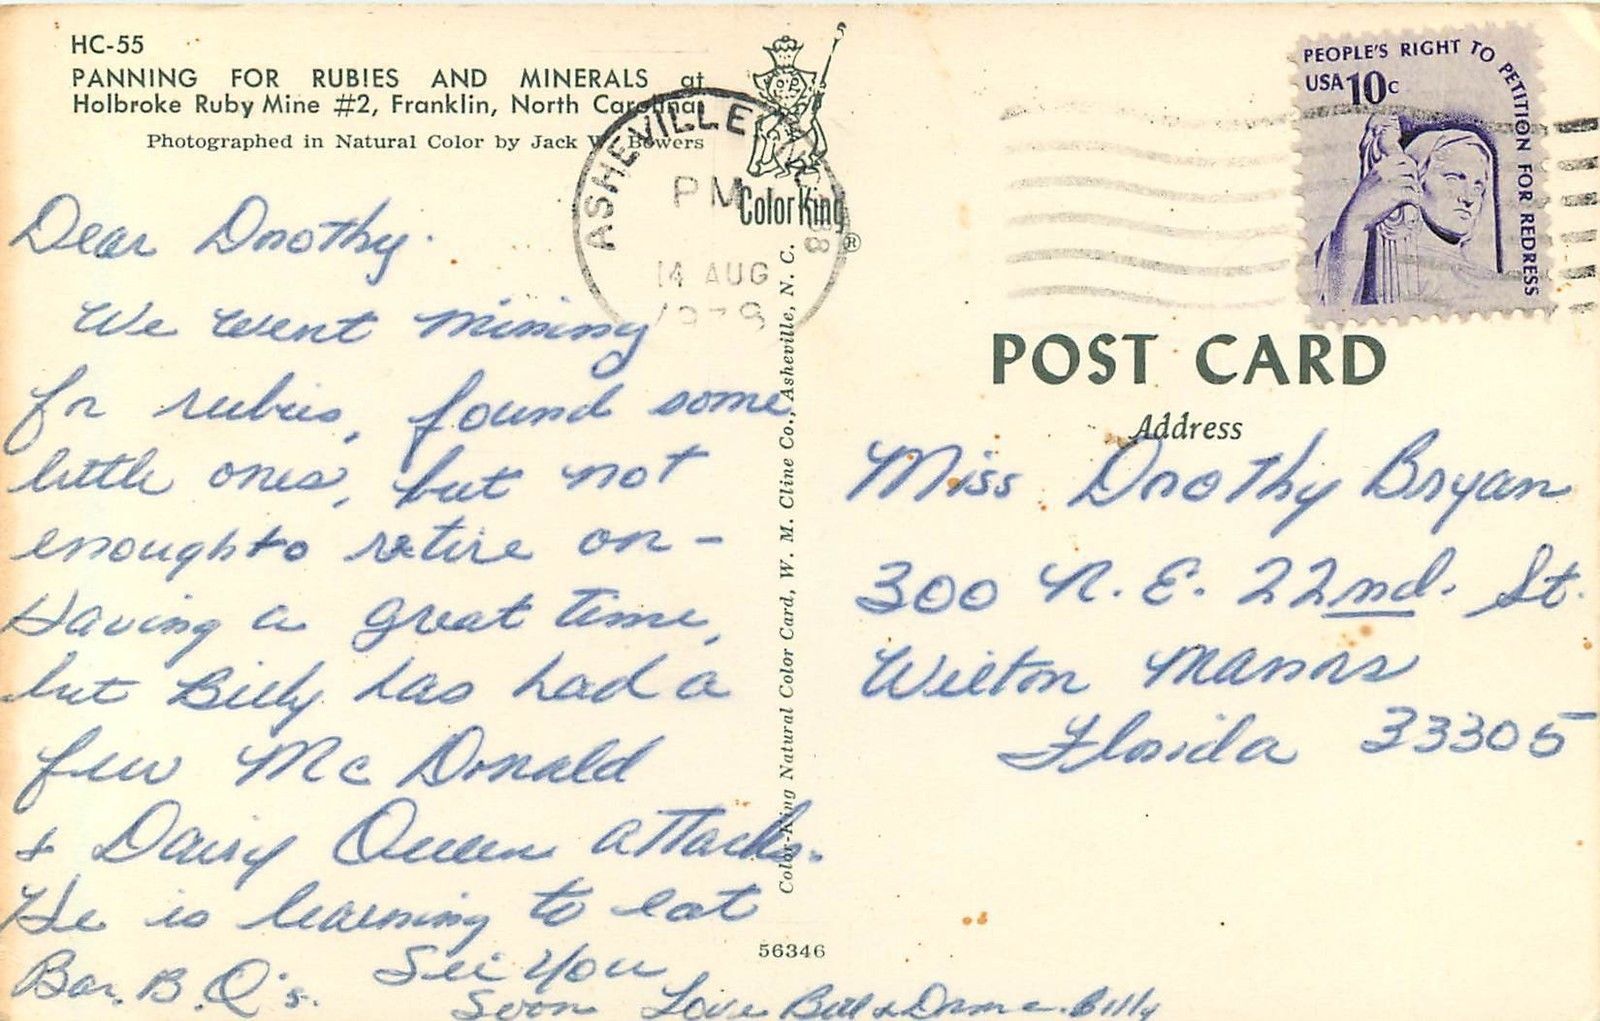 HC-55
PANNING FOR RUBIES AND MINERALS at
Holbroke Ruby Mine #2, Franklin, North Carolina
Photographed in Natural Color by Jack W. Bowers
Dear Dorothy.
We went mining
for rubies, found some
little ones, but not
enough to retire on -
Having a great time,
but Billy has had a
few McDonald
& Dairy Queen attacks.
He is learning to eat
Bar. B. Q's. See You
Soon Love Bill & Billy
ASHEVILLE
PM
14 AUG
1978
Color King ®
Color-King Natural Color Card, W. M. Cline Co., Asheville, N. C.
56346
PEOPLE'S RIGHT TO PETITION FOR REDRESS
USA 10c
POST CARD
Address
Miss Dorothy Bryan
300 N. E. 22nd. St.
Wilton Manors
Florida 33305